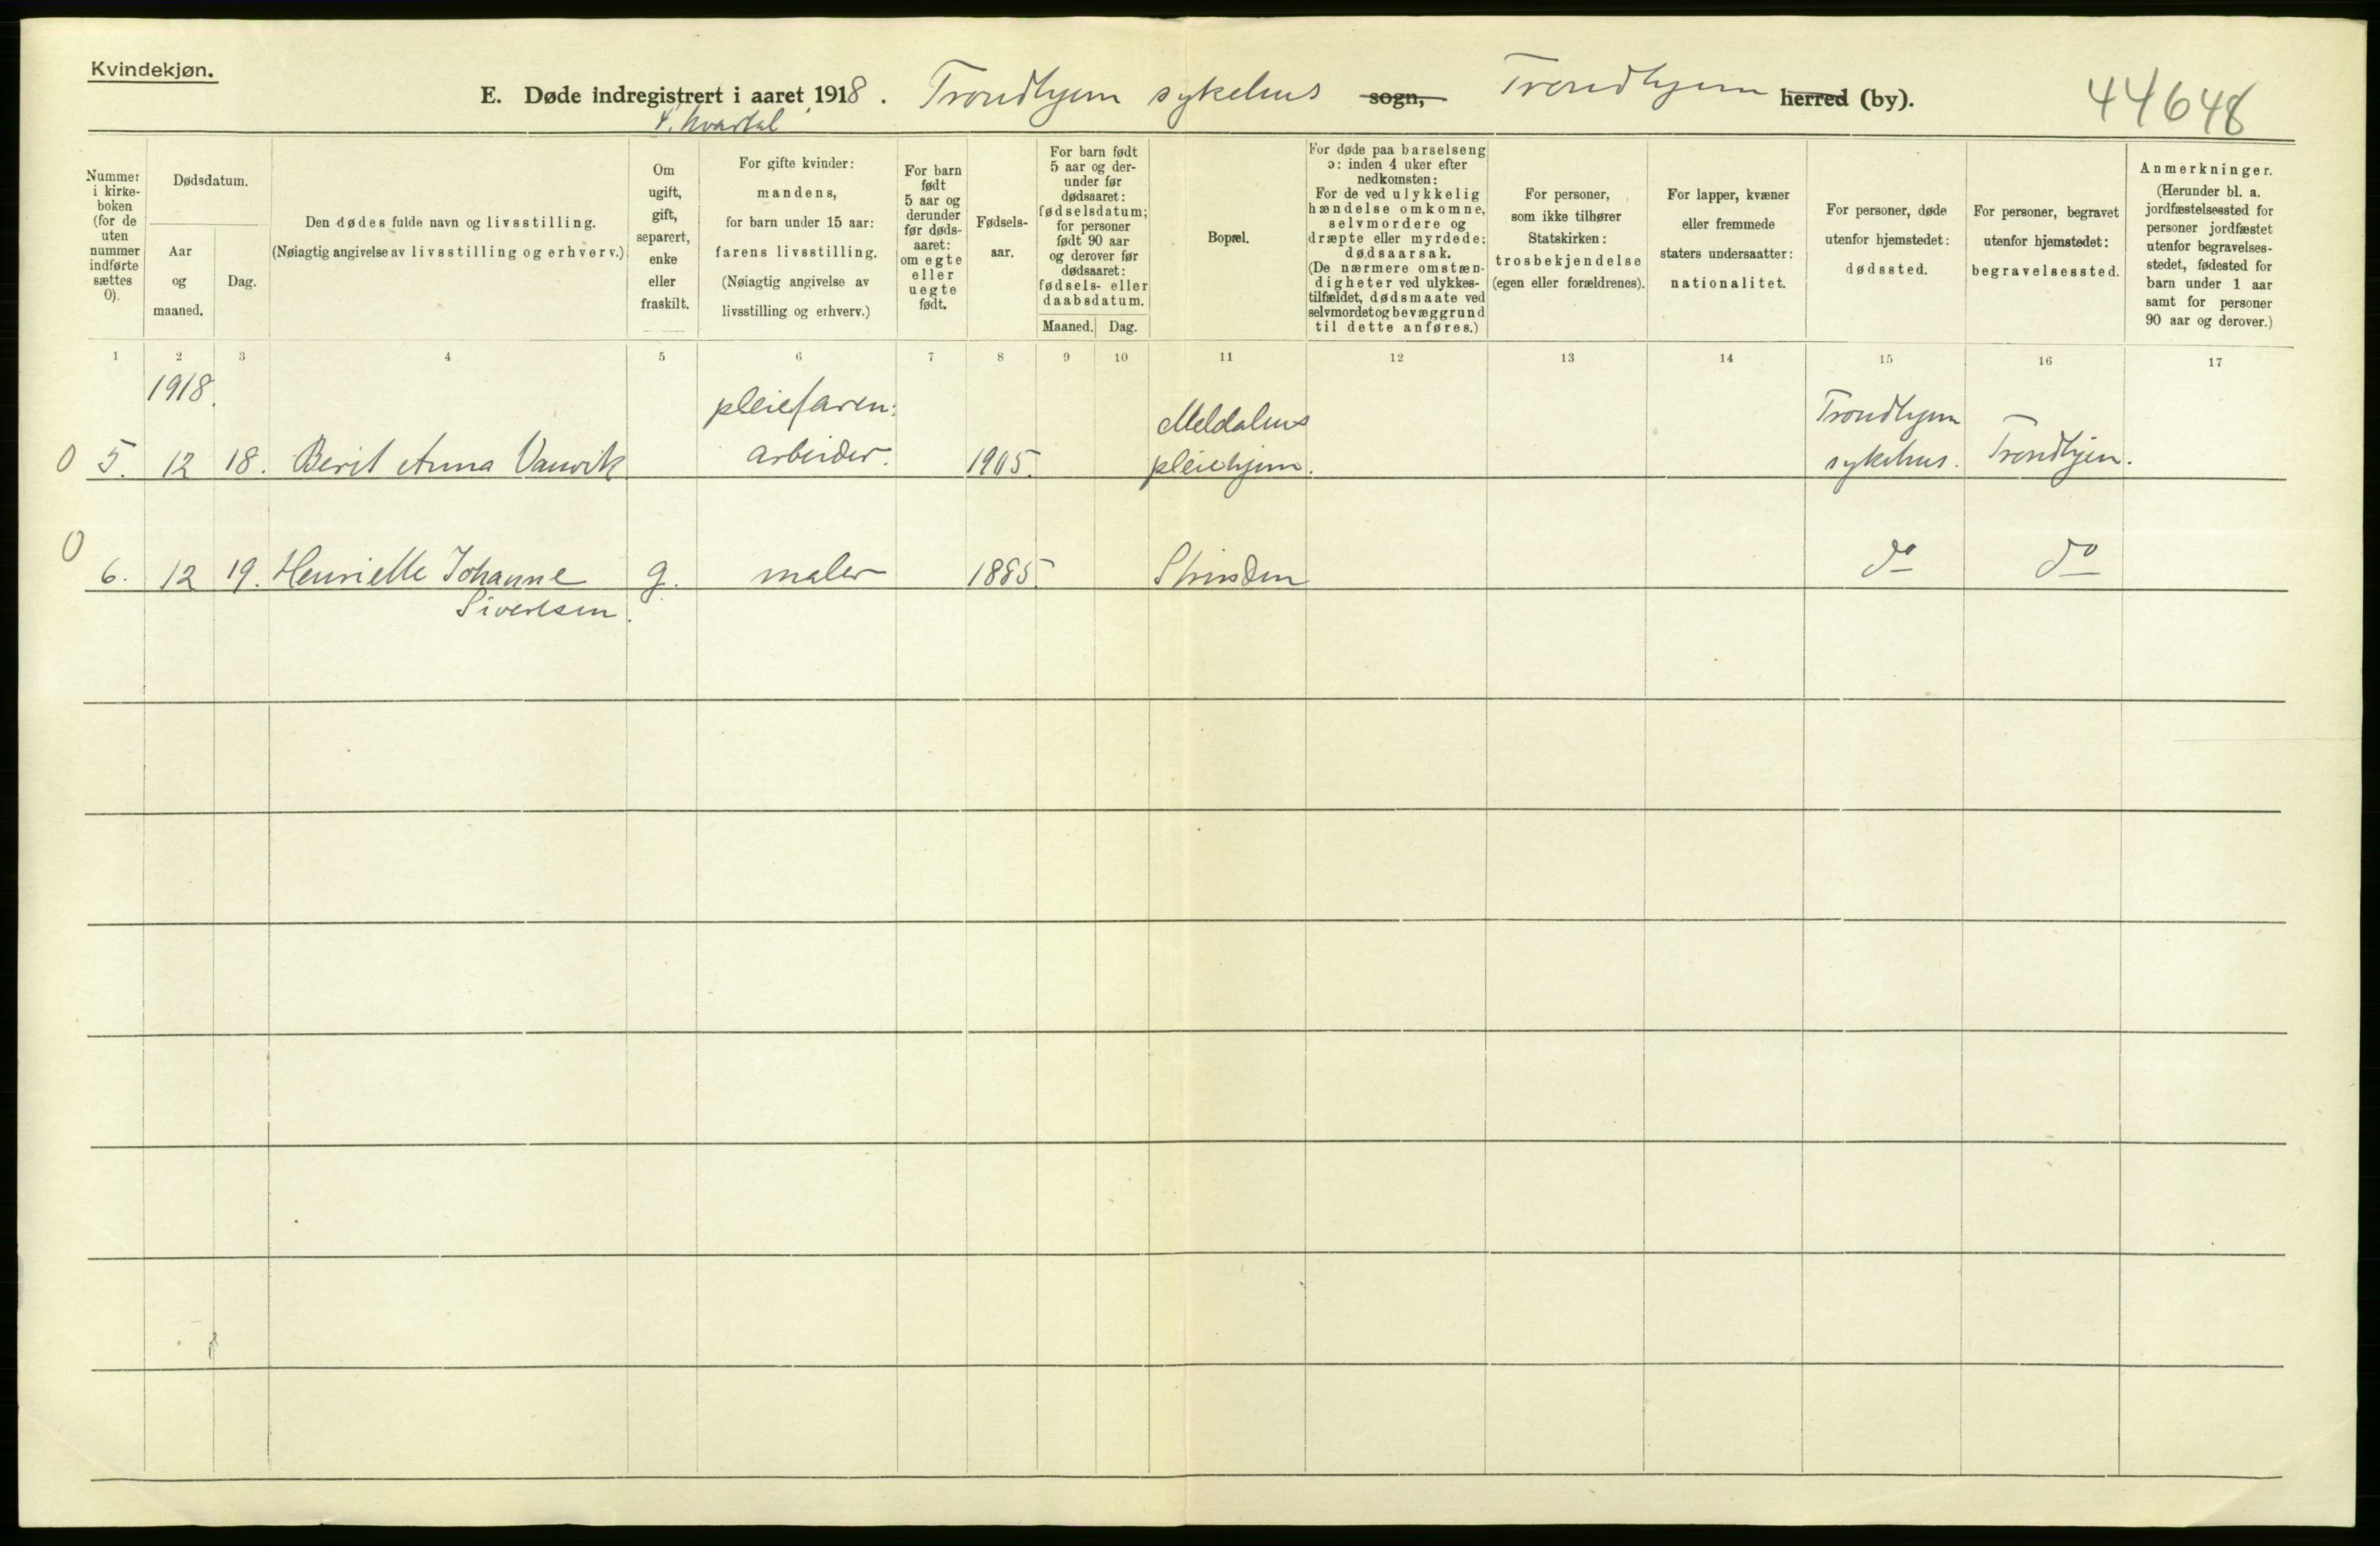 Kvindekjøn.
E. Døde indregistrert i aaret 1918. Trondhjem sykehus sogn, Trondhjem herred (by). 44648
4. kvartal
Nummer
i kirke-
boken
(for de
uten
nummer
indførte
sættes
0).
Dødsdatum.
Aar
og
maaned.
Dag.
Den dødes fulde navn og livsstilling.
(Nøiagtig angivelse av livsstilling og erhverv.)
Om
ugift,
gift,
separert,
enke
eller
fraskilt.
For gifte kvinder:
mandens,
for barn under 15 aar:
farens livsstilling.
(Nøiagtig angivelse av
livsstilling og erhverv.)
For barn
født
5 aar og
derunder
før døds-
aaret:
om egte
eller
uegte
født.
Fødsels-
aar.
For barn født
5 aar og der-
under før
dødsaaret:
fødselsdatum;
for personer
født 90 aar
og derover før
dødsaaret:
fødsels- eller
daabsdatum.
Maaned. Dag.
Bopæl.
For døde paa barselseng
ɔ: inden 4 uker efter
nedkomsten:
For de ved ulykkelig
hændelse omkomne,
selvmordere og
dræpte eller myrdede:
dødsaarsak.
(De nærmere omstæn-
digheter ved ulykkes-
tilfældet, dødsmaate ved
selvmordet og bevæggrund
til dette anføres.)
For personer,
som ikke tilhører
Statskirken:
trosbekjendelse
(egen eller forældrenes).
For lapper, kvæner
eller fremmede
staters undersaatter:
nationalitet.
For personer, døde
utenfor hjemstedet:
dødssted.
For personer, begravet
utenfor hjemstedet:
begravelsessted.
Anmerkninger.
(Herunder bl. a.
jordfæstelsessted for
personer jordfæstet
utenfor begravelses-
stedet, fødested for
barn under 1 aar
samt for personer
90 aar og derover.)
1 2 3 4 5 6 7 8 9 10 11 12 13 14 15 16 17
1918.
pleiefaren: Meldalens Trondhjem
0 5. 12 18. Berit Anna Vanvik arbeider. 1905. pleiehjem. sykehus. Trondhjem.
0 6. 12 19. Henriette Johanne g. maler 1885. Strinden do do
Sivertsen.